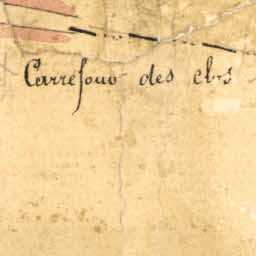 Carrefour des